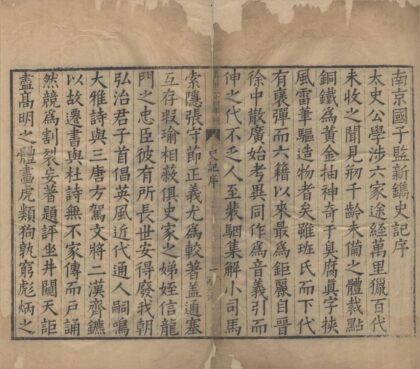 南京國子監新鐫史記序
太史公學涉六家途經萬里獵百代
未收之聞見剏千齡未備之體裁點
銅鐵爲黃金抽神奇于臭腐眞字挾
風雷筆驅造物者矣雖班氏而下代
有褒彈而六籍以來最爲鉅麗自晉
徐中散廣始考異同作爲音義引而
伸之代不乏人至裴駰集解小司馬
索隱張守節正義尤爲較著蓋通塞
互存瑕瑜相救俱史家之娣姪信龍
門之忠臣彼有所長世安得廢我朝
弘治君子首倡英風近代通人嗣鳴
大雅詩與三唐方駕文將二漢齊鑣
以故遷書與杜詩無不家傳而戶誦
然競爲割裂妄著題評坐井闚天詎
盡高明之體畫虎類狗孰窮彪炳之
史記序